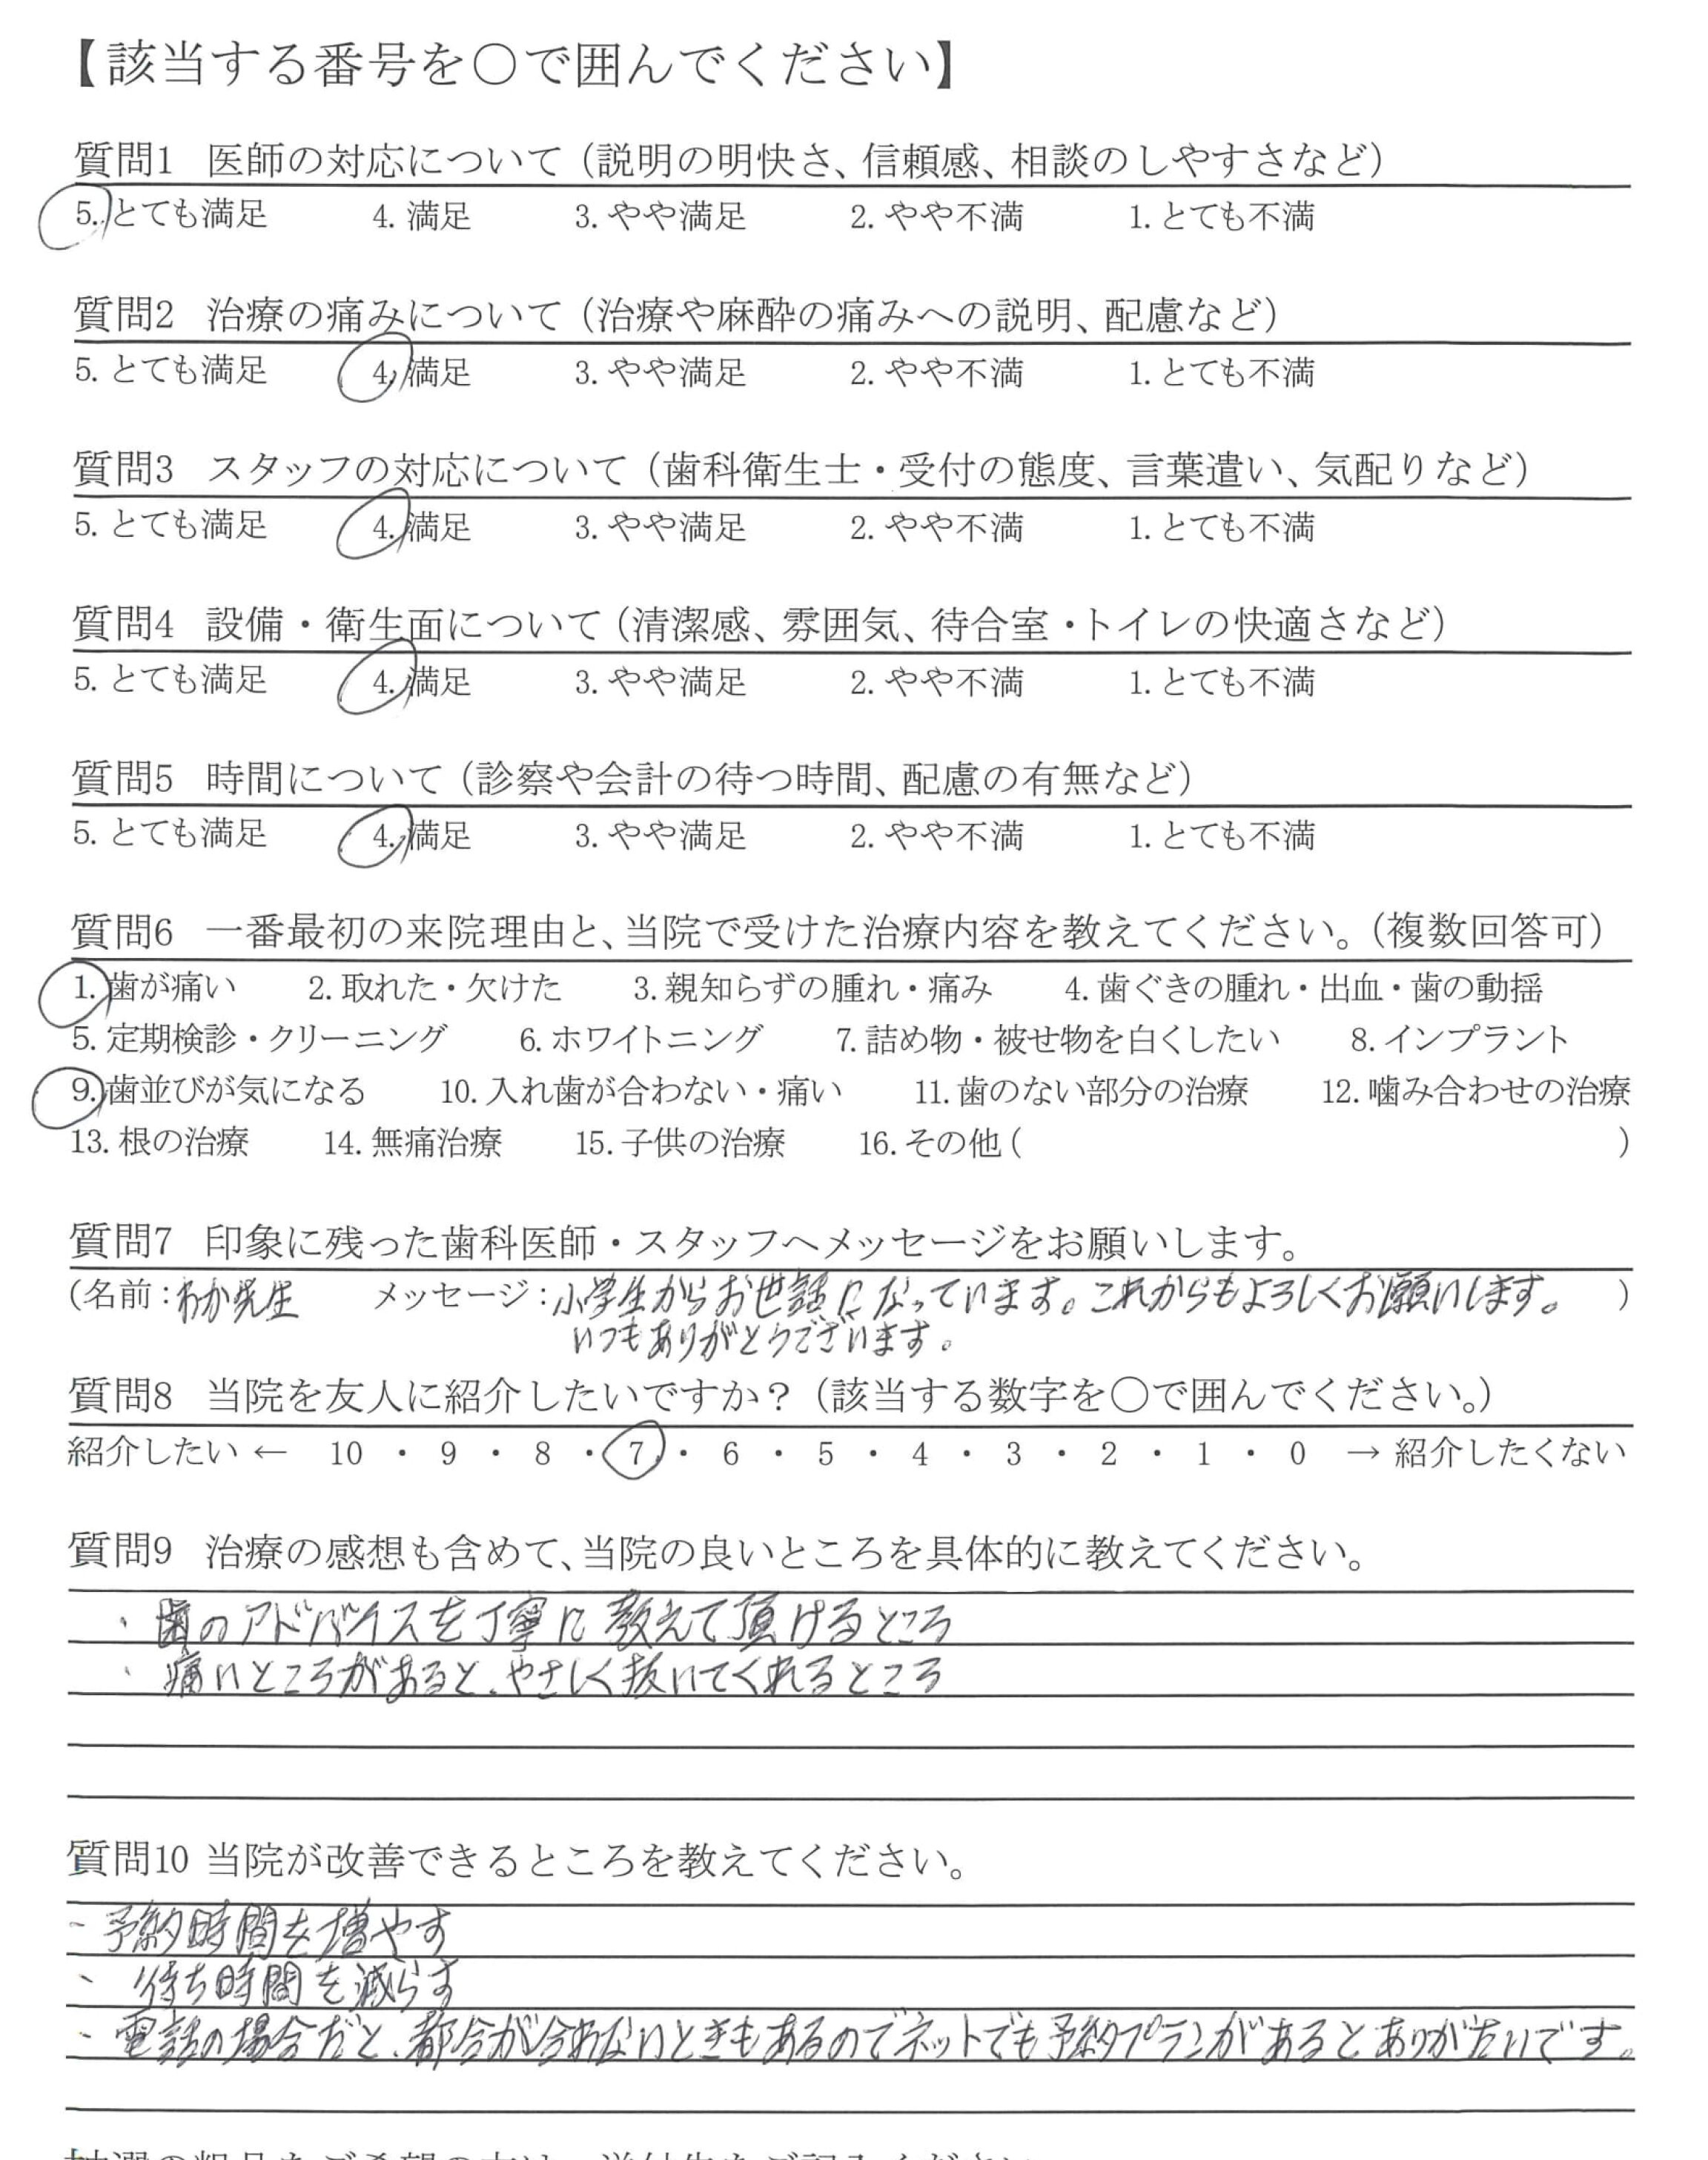 【該当する番号を〇で囲んでください】
質問1 医師の対応について（説明の明快さ、信頼感、相談のしやすさなど）
5. とても満足 4. 満足 3. やや満足 2. やや不満 1. とても不満
質問2 治療の痛みについて（治療や麻酔の痛みへの説明、配慮など）
5. とても満足 4. 満足 3. やや満足 2. やや不満 1. とても不満
質問3 スタッフの対応について（歯科衛生士・受付の態度、言葉遣い、気配りなど）
5. とても満足 4. 満足 3. やや満足 2. やや不満 1. とても不満
質問4 設備・衛生面について（清潔感、雰囲気、待合室・トイレの快適さなど）
5. とても満足 4. 満足 3. やや満足 2. やや不満 1. とても不満
質問5 時間について（診察や会計の待つ時間、配慮の有無など）
5. とても満足 4. 満足 3. やや満足 2. やや不満 1. とても不満
質問6 一番最初の来院理由と、当院で受けた治療内容を教えてください。（複数回答可）
1. 歯が痛い 2. 取れた・欠けた 3. 親知らずの腫れ・痛み 4. 歯ぐきの腫れ・出血・歯の動揺
5. 定期検診・クリーニング 6. ホワイトニング 7. 詰め物・被せ物を白くしたい 8. インプラント
9. 歯並びが気になる 10. 入れ歯が合わない・痛い 11. 歯のない部分の治療 12. 噛み合わせの治療
13. 根の治療 14. 無痛治療 15. 子供の治療 16. その他（ ）
質問7 印象に残った歯科医師・スタッフへメッセージをお願いします。
（名前：わか先生 メッセージ：小学生からお世話になっています。これからもよろしくお願いします。 ）
いつもありがとうございます。
質問8 当院を友人に紹介したいですか？（該当する数字を〇で囲んでください。）
紹介したい ← 10 ・ 9 ・ 8 ・ 7 ・ 6 ・ 5 ・ 4 ・ 3 ・ 2 ・ 1 ・ 0 → 紹介したくない
質問9 治療の感想も含めて、当院の良いところを具体的に教えてください。
・歯のアドバイスを丁寧に教えて頂けるところ
・痛いところがあると、やさしく抜いてくれるところ
質問10 当院が改善できるところを教えてください。
・予約時間を増やす
・待ち時間を減らす
・電話の場合だと、都合が合わないときもあるのでネットでも予約プランがあるとありがたいです。